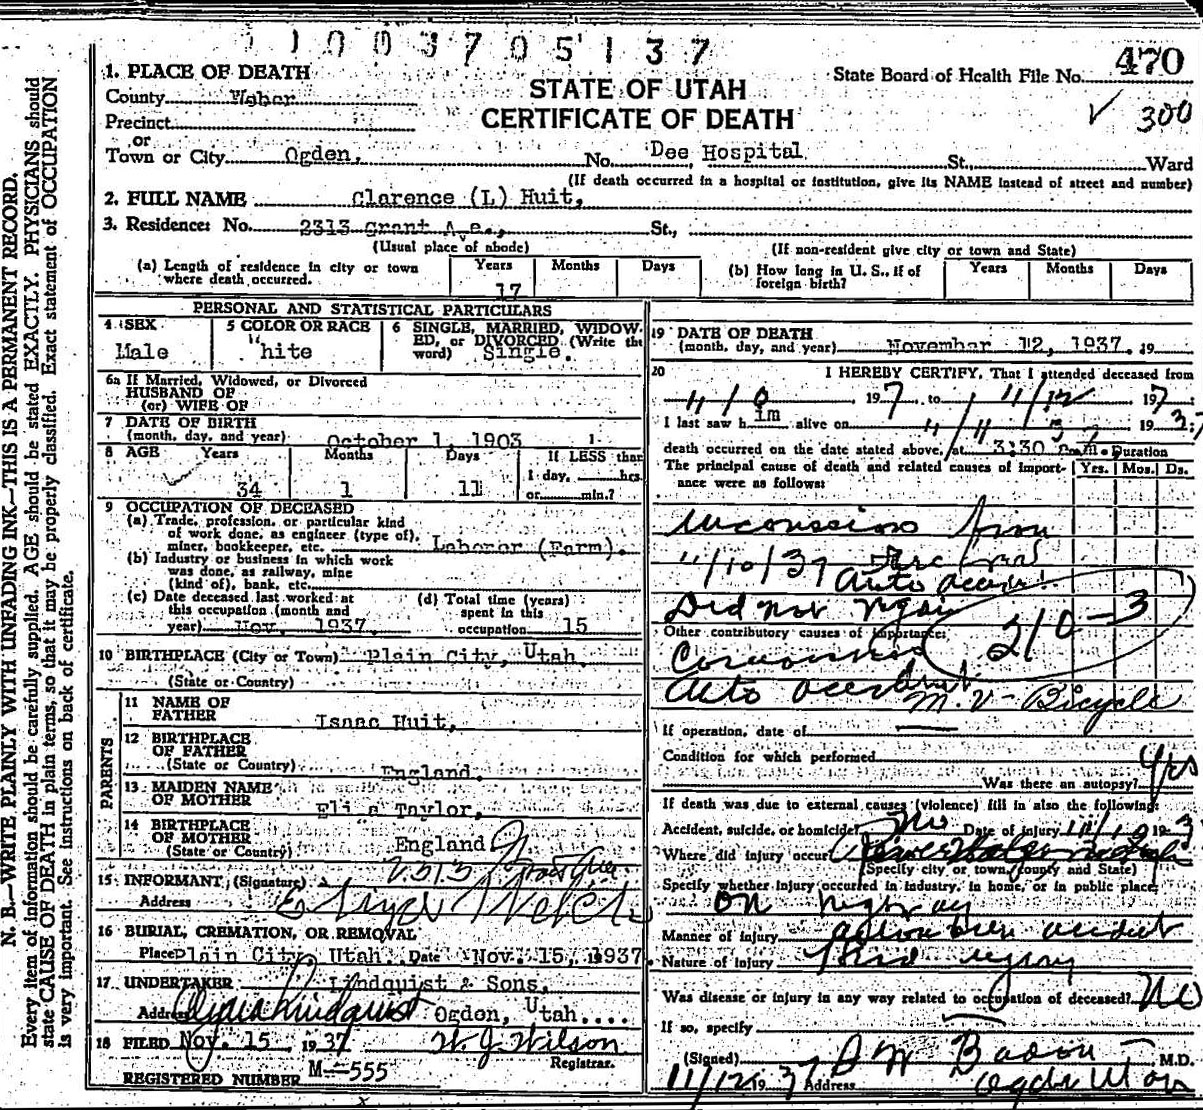 1003705137
470
State Board of Health File No.
✓ 300
STATE OF UTAH
CERTIFICATE OF DEATH
1. PLACE OF DEATH
County Weber
Precinct
or
Town or City Ogden, No. Dee Hospital St. Ward
(If death occurred in a hospital or institution, give its NAME instead of street and number)
2. FULL NAME Clarence (L) Huit,
3. Residence: No. 2313 Grant Ave., St.,
(Usual place of abode) (If non-resident give city or town and State)
(a) Length of residence in city or town where death occurred. Years 17 Months Days
(b) How long in U. S., if of foreign birth? Years Months Days
PERSONAL AND STATISTICAL PARTICULARS
4 SEX Male
5 COLOR OR RACE White
6 SINGLE, MARRIED, WIDOWED, or DIVORCED (Write the word) Single.
6a If Married, Widowed, or Divorced
HUSBAND OF
(or) WIFE OF
7 DATE OF BIRTH
(month, day, and year) October 1, 1903
8 AGE Years 34 Months 1 Days 11 If LESS than 1 day, hrs. or min.?
9 OCCUPATION OF DECEASED
(a) Trade, profession, or particular kind
of work done, as engineer (type of),
miner, bookkeeper, etc. Laboror (Farm).
(b) Industry or business in which work
was done, as railway, mine
(kind of), bank, etc.
(c) Date deceased last worked at
this occupation (month and
year) Nov. 1937.
(d) Total time (years)
spent in this
occupation 15
10 BIRTHPLACE (City or Town) Plain City, Utah
(State or Country)
PARENTS
11 NAME OF
FATHER Isaac Huit,
12 BIRTHPLACE
OF FATHER
(State or Country) England.
13 MAIDEN NAME
OF MOTHER Eliza Taylor,
14 BIRTHPLACE
OF MOTHER
(State or Country) England
15 INFORMANT, (Signature)
Address 2313 Grant Ave.
16 BURIAL, CREMATION, OR REMOVAL
Place Plain City, Utah. Date Nov. 15, 1937
17 UNDERTAKER Lindquist & Sons,
Address Ogden, Utah....
18 FILED Nov. 15 1937 W. J. Wilson
Registrar.
REGISTERED NUMBER M-555
19 DATE OF DEATH
(month, day, and year) November 12, 1937. 19
20 I HEREBY CERTIFY, That I attended deceased from
197 to 11/12 197
I last saw him alive on 11/11 193
death occurred on the date stated above, at 3:30 m. Duration
The principal cause of death and related causes of importance were as follows: Yrs. Mos. Ds.
from
11/10/37
Auto
Did not
Other contributory causes of importance:
210-3
Auto accident
M.V - Bicycle
If operation, date of
Condition for which performed
Was there an autopsy? Yes
If death was due to external causes (violence) fill in also the following:
Accident, suicide, or homicide? Date of injury 11/10 193
Where did injury occur?
(Specify city or town, county and State)
Specify whether injury occurred in industry, in home, or in public place:
on highway
Manner of injury accident
Nature of injury
Was disease or injury in any way related to occupation of deceased? No
If so, specify
(Signed) M.D.
11/12 1937 Address Ogden Utah
N. B.—WRITE PLAINLY WITH UNFADING INK—THIS IS A PERMANENT RECORD.
Every item of information should be carefully supplied. AGE should be stated EXACTLY. PHYSICIANS should
state CAUSE OF DEATH in plain terms, so that it may be properly classified. Exact statement of OCCUPATION
is very important. See instructions on back of certificate.